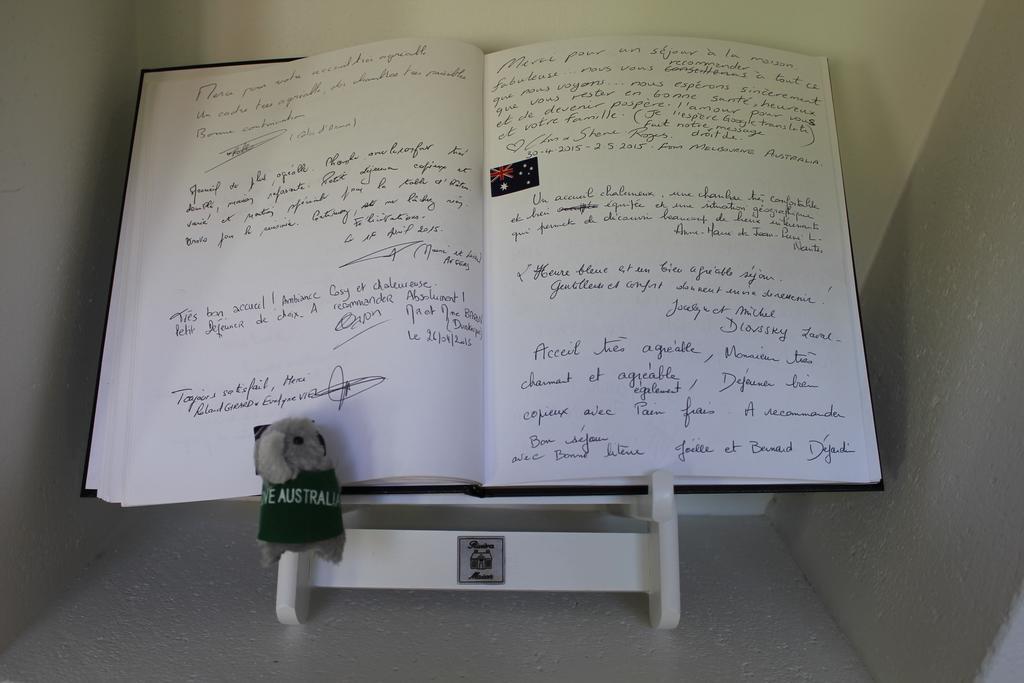 Merci pour votre accueil très agréable
Un cadre très agréable, des chambres très paisibles
Bonne continuation
Accueil de plus agréable. Chambre
Petit déjeuner copieux et
varié et pour la table d'hôtes
Bravo pour la
Félicitations.
Le 18 Avril 2015.
ANGERS
Très bon accueil! Ambiance Cosy et chaleureuse.
Petit déjeuner de choix. A recommander Absolument!
Mr et Mme
(Dunkerque)
Le 26/04/2015
Toujours satisfait, Merci
Roland GIRARD & Evelyne
Merci pour un séjour à la maison
fabuleuse... nous vous recommander à tout ce
que nous voyons... nous espérons sincèrement
que vous rester en bonne santé, heureux
et de devenir pospère. l'amour pour vous
et votre famille. (Je l'espère Google translate)
fait notre message
droit de.
& Shane Rogers.
30-4-2015 - 2.5.2015. From MELBOURNE AUSTRALIA.
Un accueil chaleureux, une chambre très confortable
et bien équipée et une situation géographique
qui permet de découvrir beaucoup de lieux intéressants
Anne-Marie & Jean-Louis L.
Nantes
L'Heure bleue est un bien agréable séjour.
Gentillesse et confort donnent envie de revenir!
Jocelyne et Michel
DLOUSSKY Laval-
Acceil très agréable, Monsieur très
charmant et agréable
également, Déjeuner bien
copieux avec Pain frais. A recommander
Bon séjour
avec Bonne literie Joëlle et Bernard Déjardin
VE AUSTRALIA
Riviera
Maison